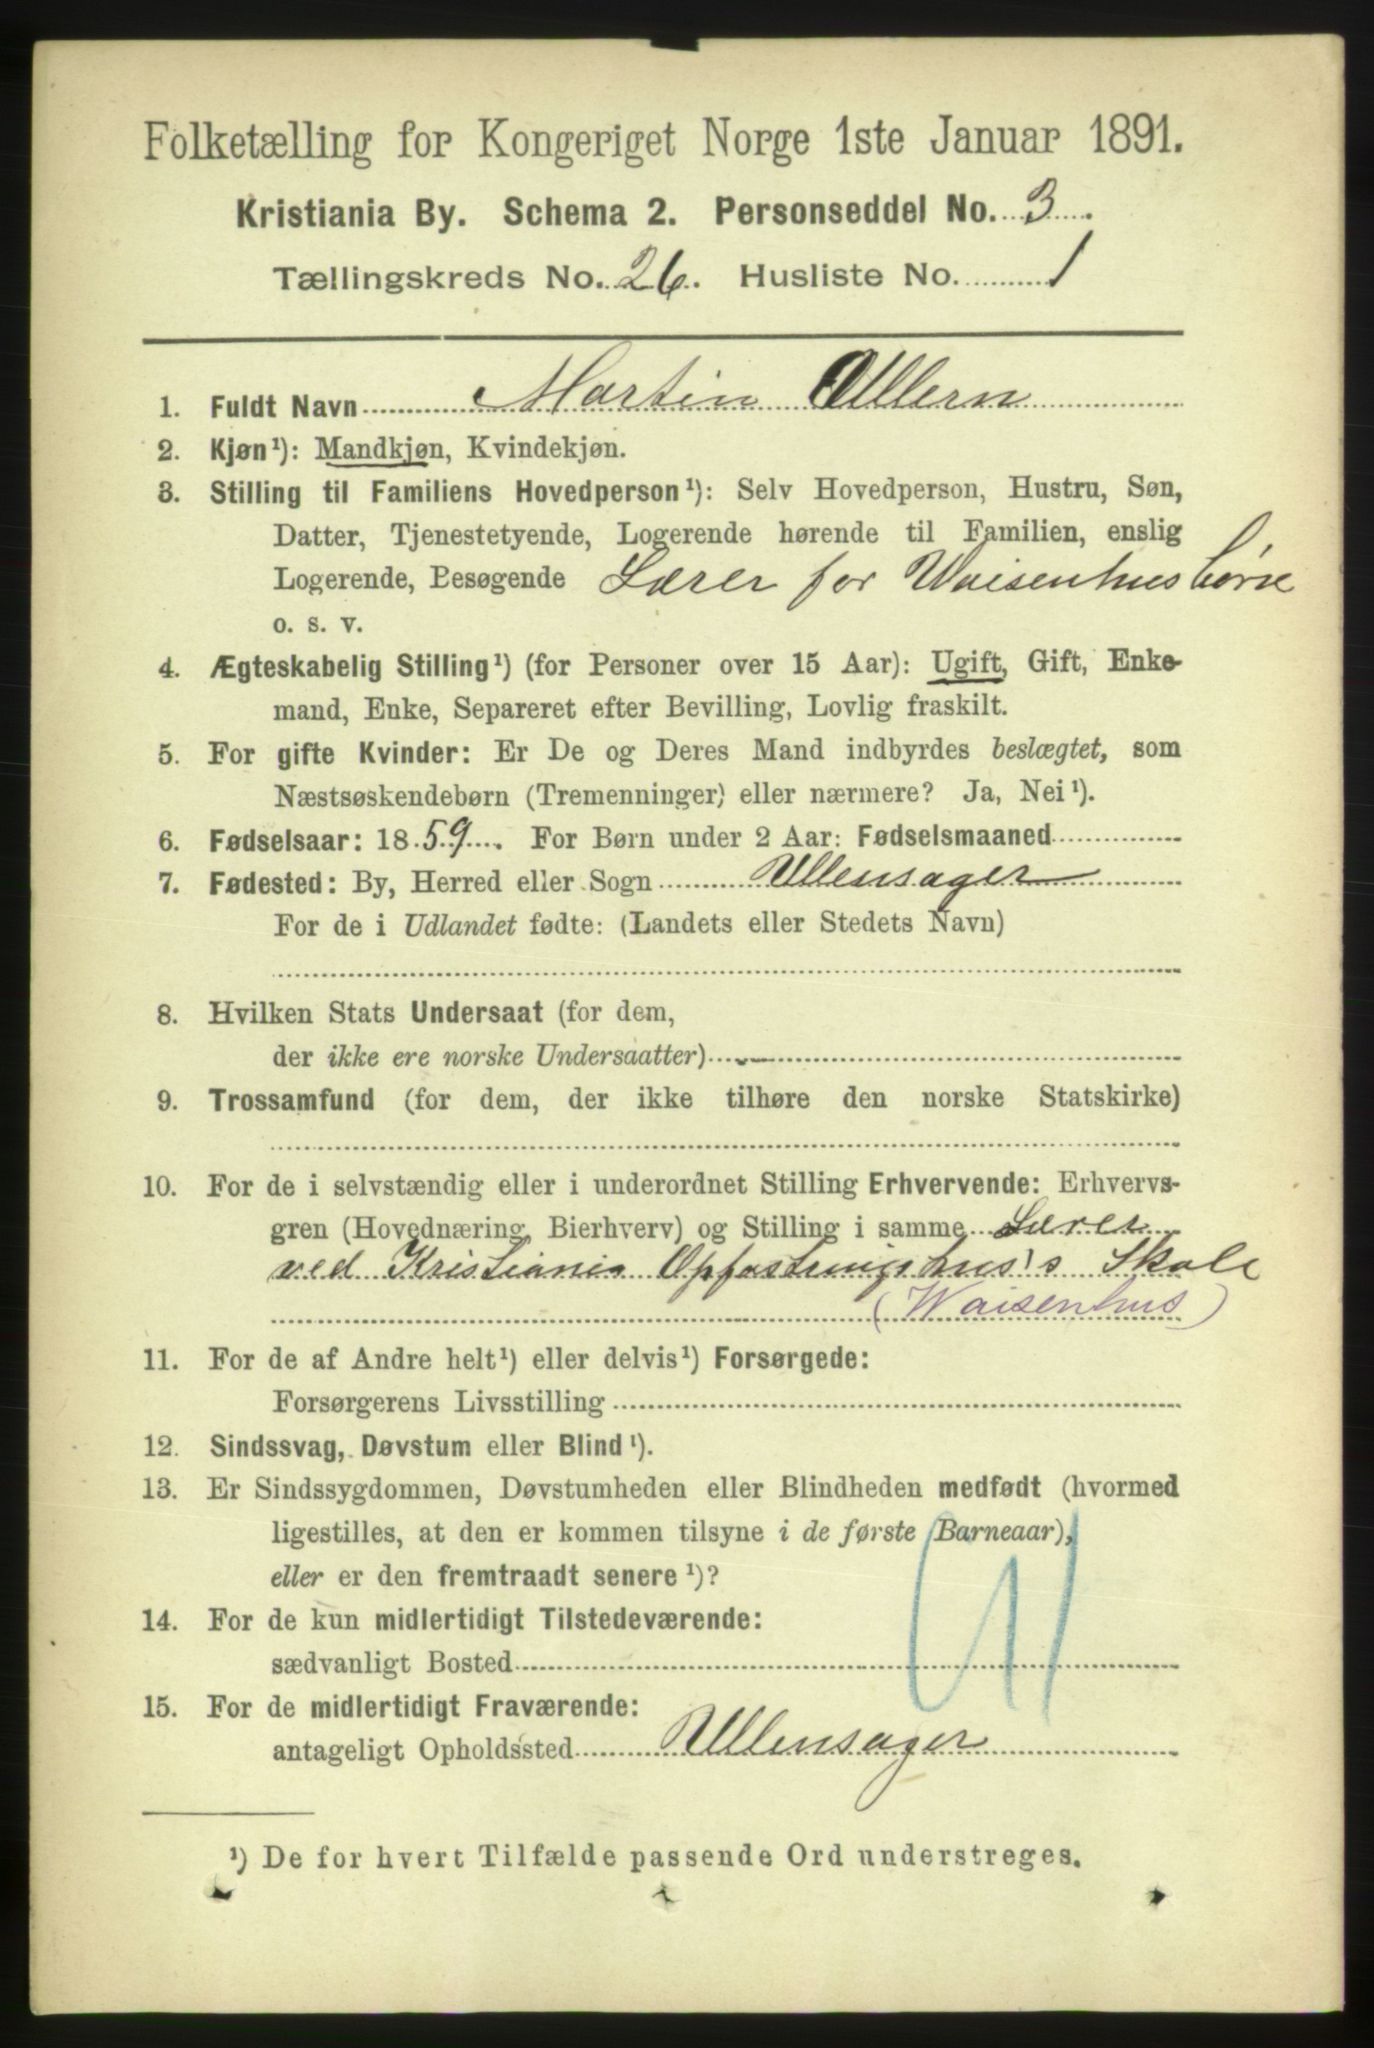 Folketælling for Kongeriget Norge 1ste Januar 1891.
Kristiania By. Schema 2. Personseddel No. 3.
Tællingskreds No. 26. Husliste No. 1
1. Fuldt Navn Martin Ullern
2. Kjøn¹): Mandkjøn, Kvindekjøn.
3. Stilling til Familiens Hovedperson¹): Selv Hovedperson, Hustru, Søn,
Datter, Tjenestetyende, Logerende hørende til Familien, enslig
Logerende, Besøgende Lærer for Waisenhusbörne
o. s. v.
4. Ægteskabelig Stilling¹) (for Personer over 15 Aar): Ugift, Gift, Enke-
mand, Enke, Separeret efter Bevilling, Lovlig fraskilt.
5. For gifte Kvinder: Er De og Deres Mand indbyrdes beslægtet, som
Næstsøskendebørn (Tremenninger) eller nærmere? Ja, Nei¹).
6. Fødselsaar: 1859. For Børn under 2 Aar: Fødselsmaaned
7. Fødested: By, Herred eller Sogn Ullensager
For de i Udlandet fødte: (Landets eller Stedets Navn)
8. Hvilken Stats Undersaat (for dem,
der ikke ere norske Undersaatter)
9. Trossamfund (for dem, der ikke tilhøre den norske Statskirke)
10. For de i selvstændig eller i underordnet Stilling Erhvervende: Erhvervs-
gren (Hovednæring, Bierhverv) og Stilling i samme Lærer
ved Kristiania Opfostringshus's Skole
(Waisenhus)
11. For de af Andre helt¹) eller delvis¹) Forsørgede:
Forsørgerens Livsstilling
12. Sindssvag, Døvstum eller Blind¹).
13. Er Sindssygdommen, Døvstumheden eller Blindheden medfødt (hvormed
ligestilles, at den er kommen tilsyne i de første Barneaar),
eller er den fremtraadt senere¹)?
14. For de kun midlertidigt Tilstedeværende:
sædvanligt Bosted
15. For de midlertidigt Fraværende:
antageligt Opholdssted Ullensager
¹) De for hvert Tilfælde passende Ord understreges.